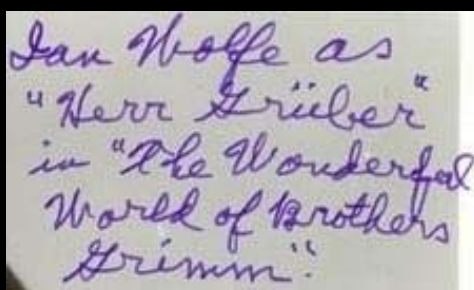 Ian Wolfe as
"Herr Grüber"
in "The Wonderful
World of Brothers
Grimm".